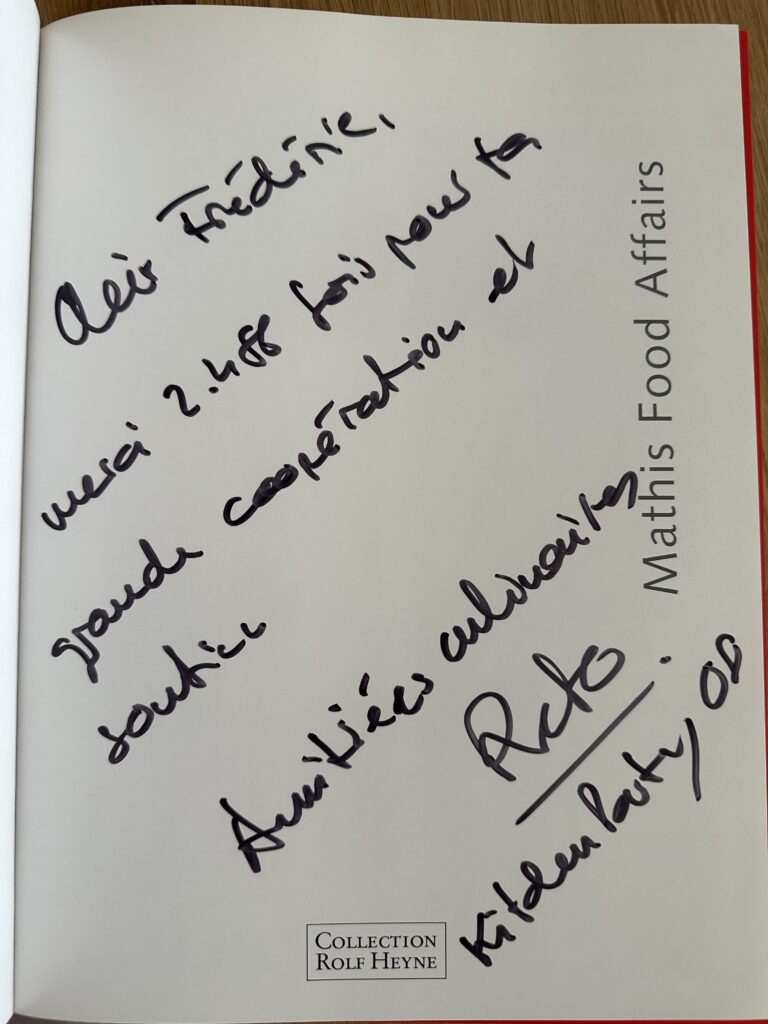 Cher Frédéric,
merci 2.488 fois pour ta
grande coopération et
soutien
Amitiées culinaires
Reto
Kitchen Party 08
Mathis Food Affairs
COLLECTION
ROLF HEYNE